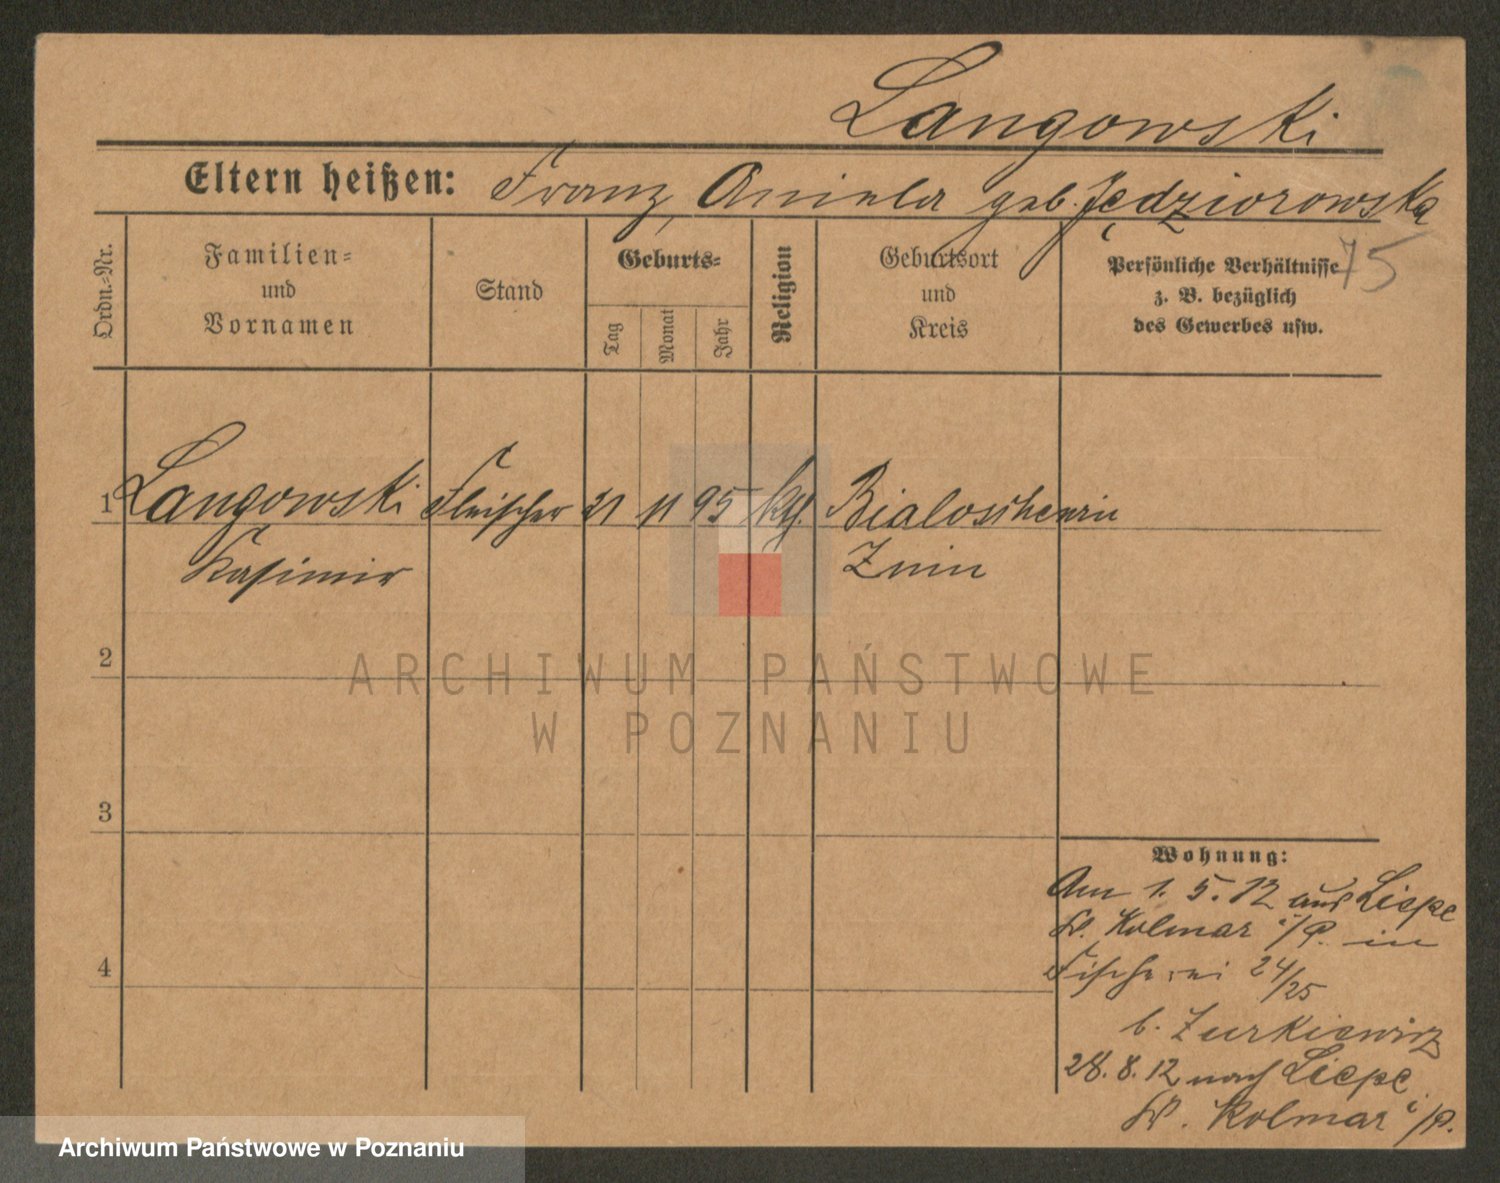 Langowski
Eltern heißen: Franz, Aniela geb. Jędziorowska
75
Ordn.-Nr.
Familien-
und
Vornamen
Stand
Geburts-
Tag
Monat
Jahr
Religion
Geburtsort
und
Kreis
Persönliche Verhältnisse
z. B. bezüglich
des Gewerbes usw.
1 Langowski Fleischer 21 11 95 kth.
Kasimir Znin
2
ARCHIWUM PAŃSTWOWE
W POZNANIU
3
Wohnung:
Am 1. 5. 12 aus Liepe
Kr. Kolmar i/P. in
4
Fischerei 24/25
b. Zurkiewicz
28. 8. 12 nach Liepe
Kr. Kolmar i/P.
Archiwum Państwowe w Poznaniu